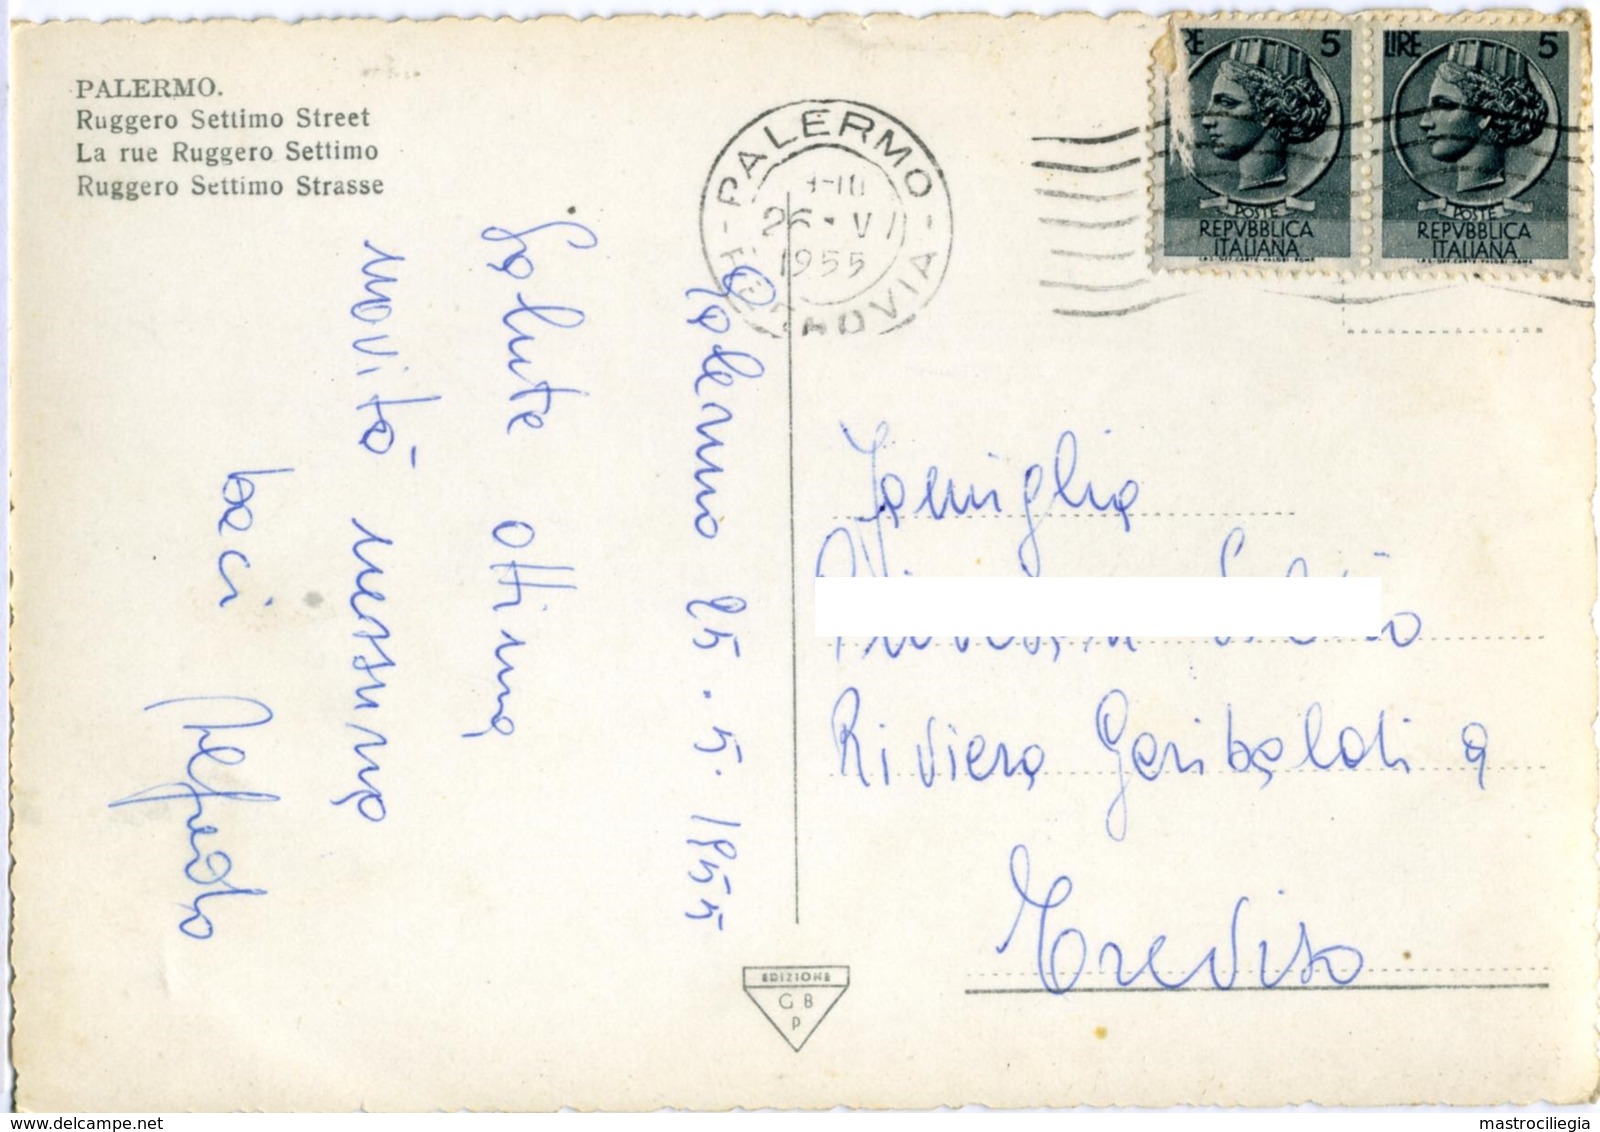 PALERMO.
Ruggero Settimo Street
La rue Ruggero Settimo
Ruggero Settimo Strasse
PALERMO
26 · VI
1955
FERROVIA
LIRE 5
POSTE
REPVBBLICA
ITALIANA
LIRE 5
POSTE
REPVBBLICA
ITALIANA
Palermo 25.5.1955
Salute ottima
novità nessuna
baci
Alfredo
Famiglia
Riviera Garibaldi 9
Treviso
EDIZIONE
G B
P
delcampe.net
mastrociliegia